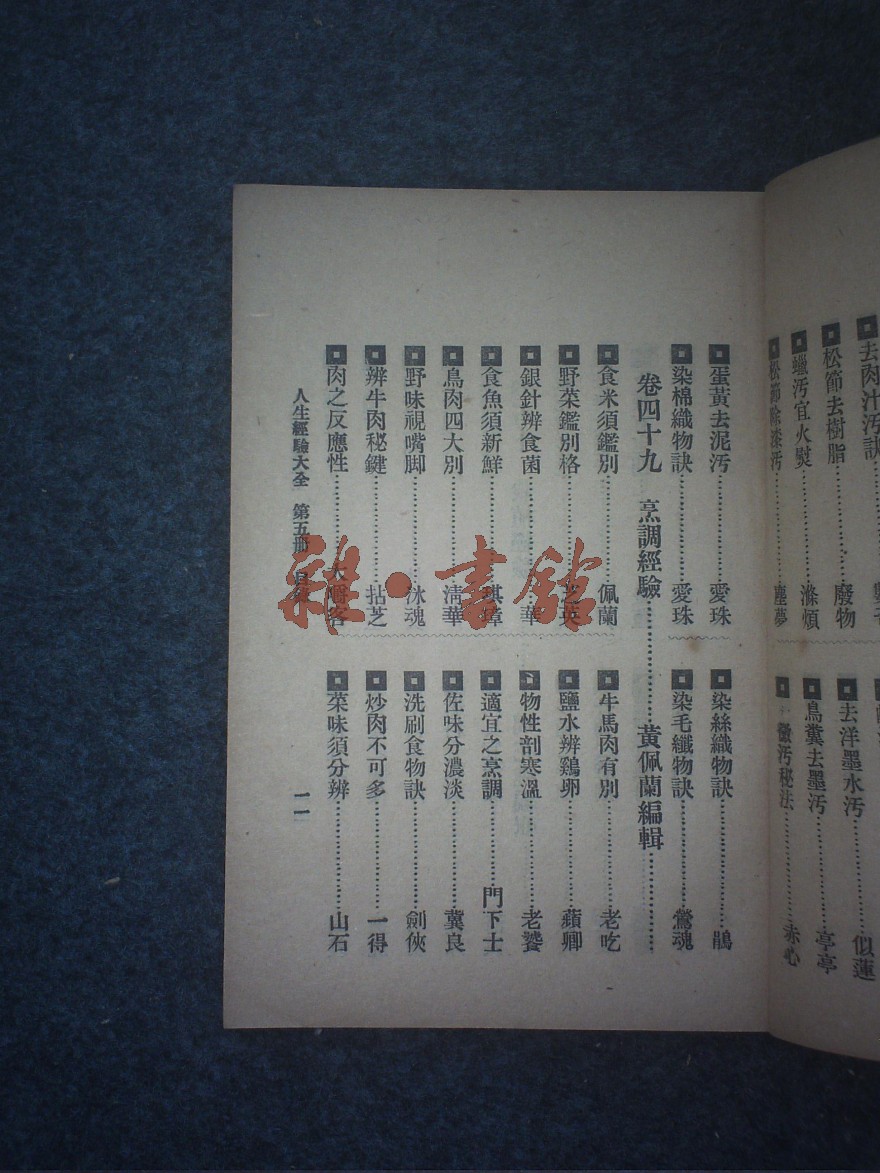 去肉汁汚訣
松節去樹脂……………廢物
蠟汚宜火熨……………滌煩
松節除漆汚……………塵夢
去洋墨水汚……………似蓮
鳥糞去墨汚……………亭亭
汚秘法……………赤心
蛋黃去泥汚……………愛珠
染棉織物訣……………愛珠
染絲織物訣……………鵑
染毛織物訣……………鶯魂
卷四十九 烹調經驗……………黃佩蘭編輯……………
食米須鑑別……………佩蘭
野菜鑑別格……………英
銀針辨食菌……………華
食魚須新鮮……………琪璋
鳥肉四大別……………淸華
野味視嘴脚……………冰魂
辨牛肉秘鍵……………拈芝
肉之反應性……………大嚼客
牛馬肉有別……………老吃
鹽水辨鷄卵……………蘋卿
物性剖寒溫……………老饕
適宜之烹調……………門下士
佐味分濃淡……………冀良
洗刷食物訣……………劍俠
炒肉不可多……………一得
菜味須分辨……………山石
人生經驗大全 第五册 目錄
一一
雜·書館